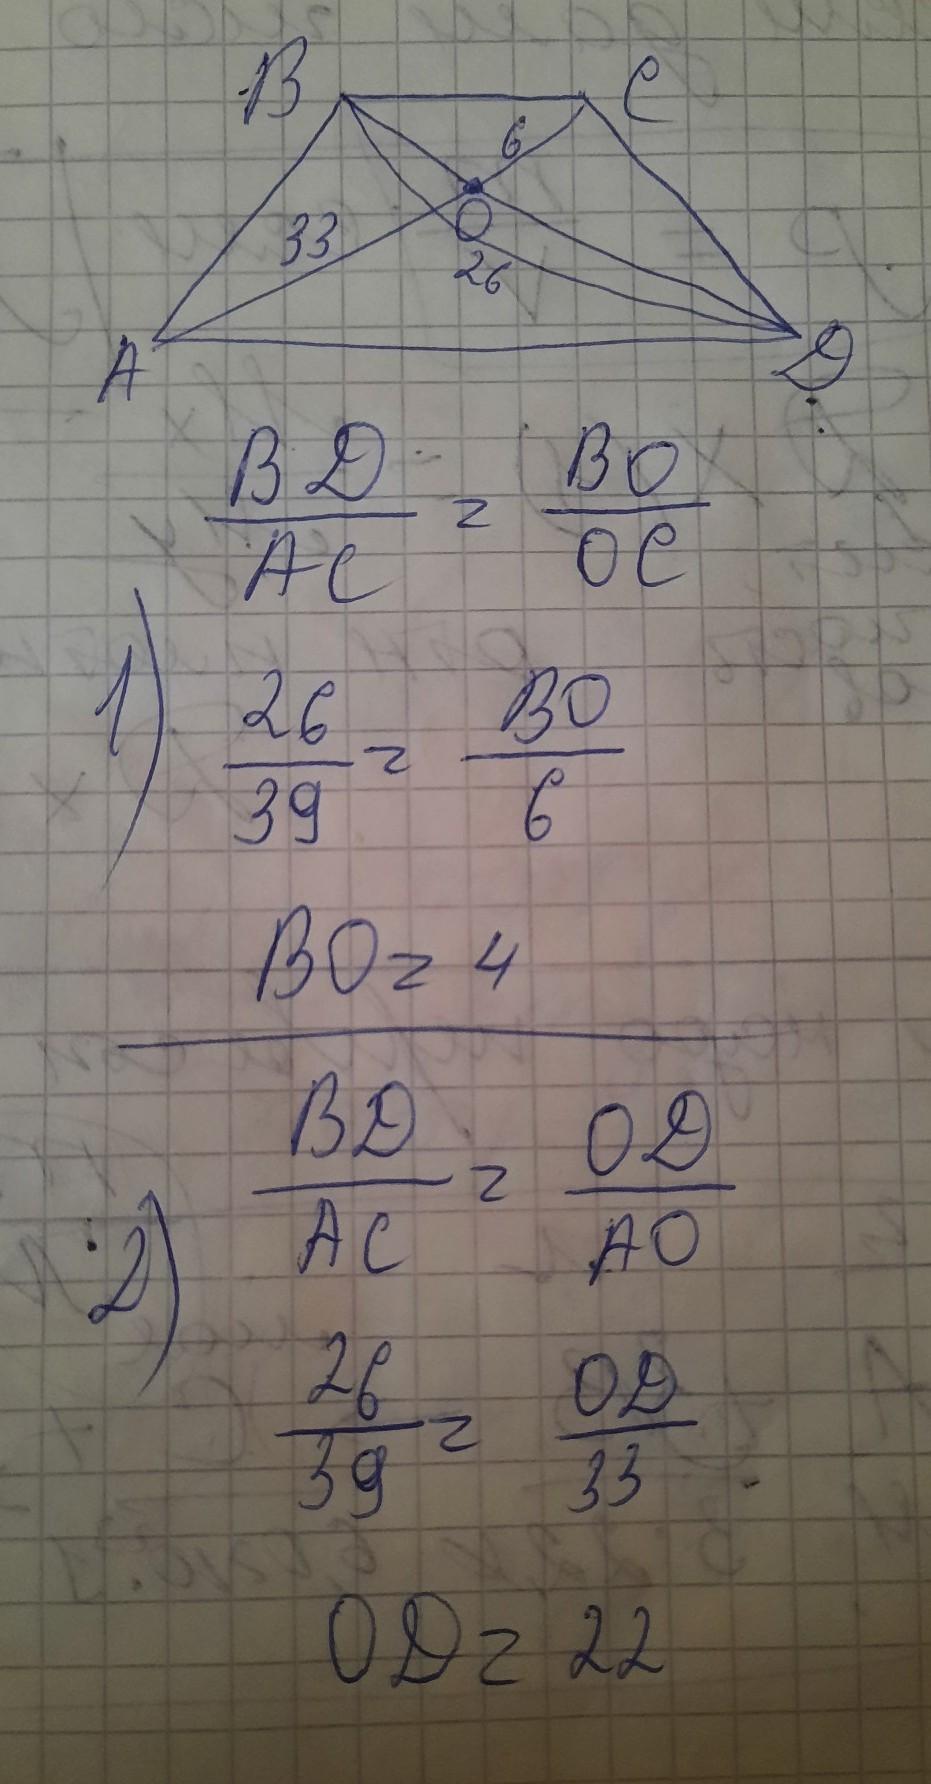 B C
6
33 O
26
A D
BD/AC = BO/OC
1) 26/39 = BO/6
BO = 4
2) BD/AC = OD/AO
26/39 = OD/33
OD = 22